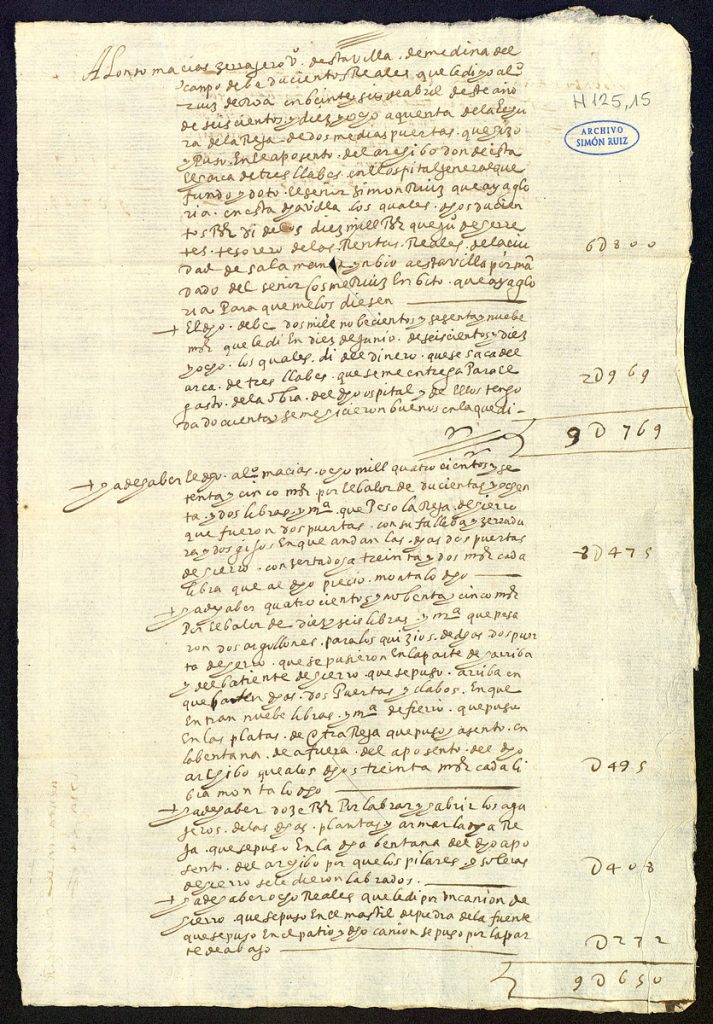 Alonso macias zerrajero vº. destavilla. demedina del
campo debe ducientos Reales. queledi yo alº
Ruiz en beinte y de abril de este año
de seiscientos y diez y ocho aquenta dela
ra dela Reja. de dos medias puertas. que hizo
y Puso. En el aposento. del archibo donde esta
el arca de tres llabes. en el ospital general que
fundo y doto. el señor simon Ruiz que aya glo
ria. en esta dha villa los quales. dhos ducien
tos Rs di de los diez mill Rs que juº
tes. tesorero de las Rentas. Reales. de la ciu
dad de salamanca ynbio a esta villa por mã
dado del señor cosme Ruiz Enbito. que aya glo
ria Para que me los diesen
6D800
H 125,15
ARCHIVO
SIMÓN RUIZ
+ El dho. debe dos mill e nobecientos y sesenta y nuebe
mrs que le di En diez de Junio. de seiscientos y diez
y ocho. los quales. di del dinero. que se saca del
arca. de tres llabes. que se me entrega Para el
gasto. de la obra. del dho ospital y de ellos tengo
dado cuenta y se me hicieron buenos en la que di-
2D969
9D769
+ y a de haber el dho. alº macias. ocho mill quatrocientos y se
tenta y cinco mrs por el balor de ducientas y
ta. y dos libras. y mª. que Peso la Reja. de hierro
que fueron dos puertas. con su falleba y zerradu
ra y dos En que andan las. dhas dos puertas
de hierro. concertados a treinta y dos mrs cada
libra que al dho precio. monta lo dho
8D475
+ y a de haber quatrocientos y nobenta y cinco mrs
Por el balor de diez y seis libras. y mª que pesa
ron dos argollones. para los quizios. de dhas dos puer
tas de hierro. que se pusieron En la parte de arriba
y del batiente de hierro. que se puso. arriba en
que baten dhas. dos Puertas y clabos. En que
Entran nuebe libras. y mª de fierro. que puso
En las platas. de otra Reja que puso y asento. en
la bentana. de afuera. del aposento. del dho
archibo que a los dhos treinta mrs cada li
bra monta lo dho
D495
+ y a de haber doze Rs Por labrar y abrir los agu
jeros. de las dhas. plantas y armar la dha Re
ja. que se puso En la dha bentana. del dho apo
sento. del archibo por que los pilares. y soleras
de hierro se le dieron labrados.
D408
+ y a de haber ocho Reales que le di por un cañon de
hierro. que se puso En el mastil de piedra de la fuente
que se puso En el patio y dho cañon se puso por la par
te de abajo
D272
9D650